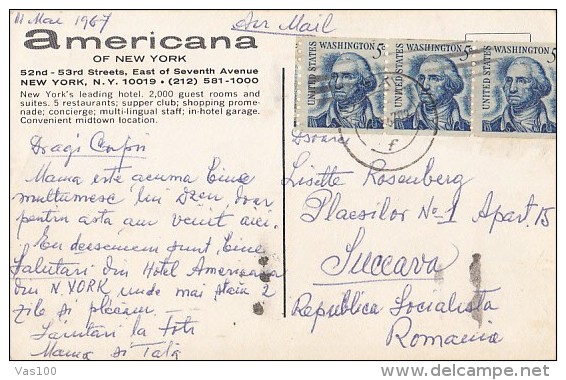 11 Mai 1967
Air Mail
americana
OF NEW YORK
52nd - 53rd Streets, East of Seventh Avenue
NEW YORK, N.Y. 10019 • (212) 581-1000
New York's leading hotel. 2,000 guest rooms and
suites. 5 restaurants; supper club; shopping prome-
nade; concierge; multi-lingual staff; in-hotel garage.
Convenient midtown location.
UNITED STATES WASHINGTON 5c
UNITED STATES WASHINGTON 5c
UNITED STATES WASHINGTON 5c
Dragi
Mama este acuma bine
multumesc lui Dzeu, doar
pentru asta am venit aici.
Eu deasemeni sunt bine
Salutari din Hotel Americana
din N. YORK unde mai stau 2
zile si plecam —
Salutari la toti
Mama si Tata
Doarei
Lisette Rosenberg
Plaesilor No 1 Apart. 15
Succava
Republica Socialista
Romania
Vas100
delcampe.net